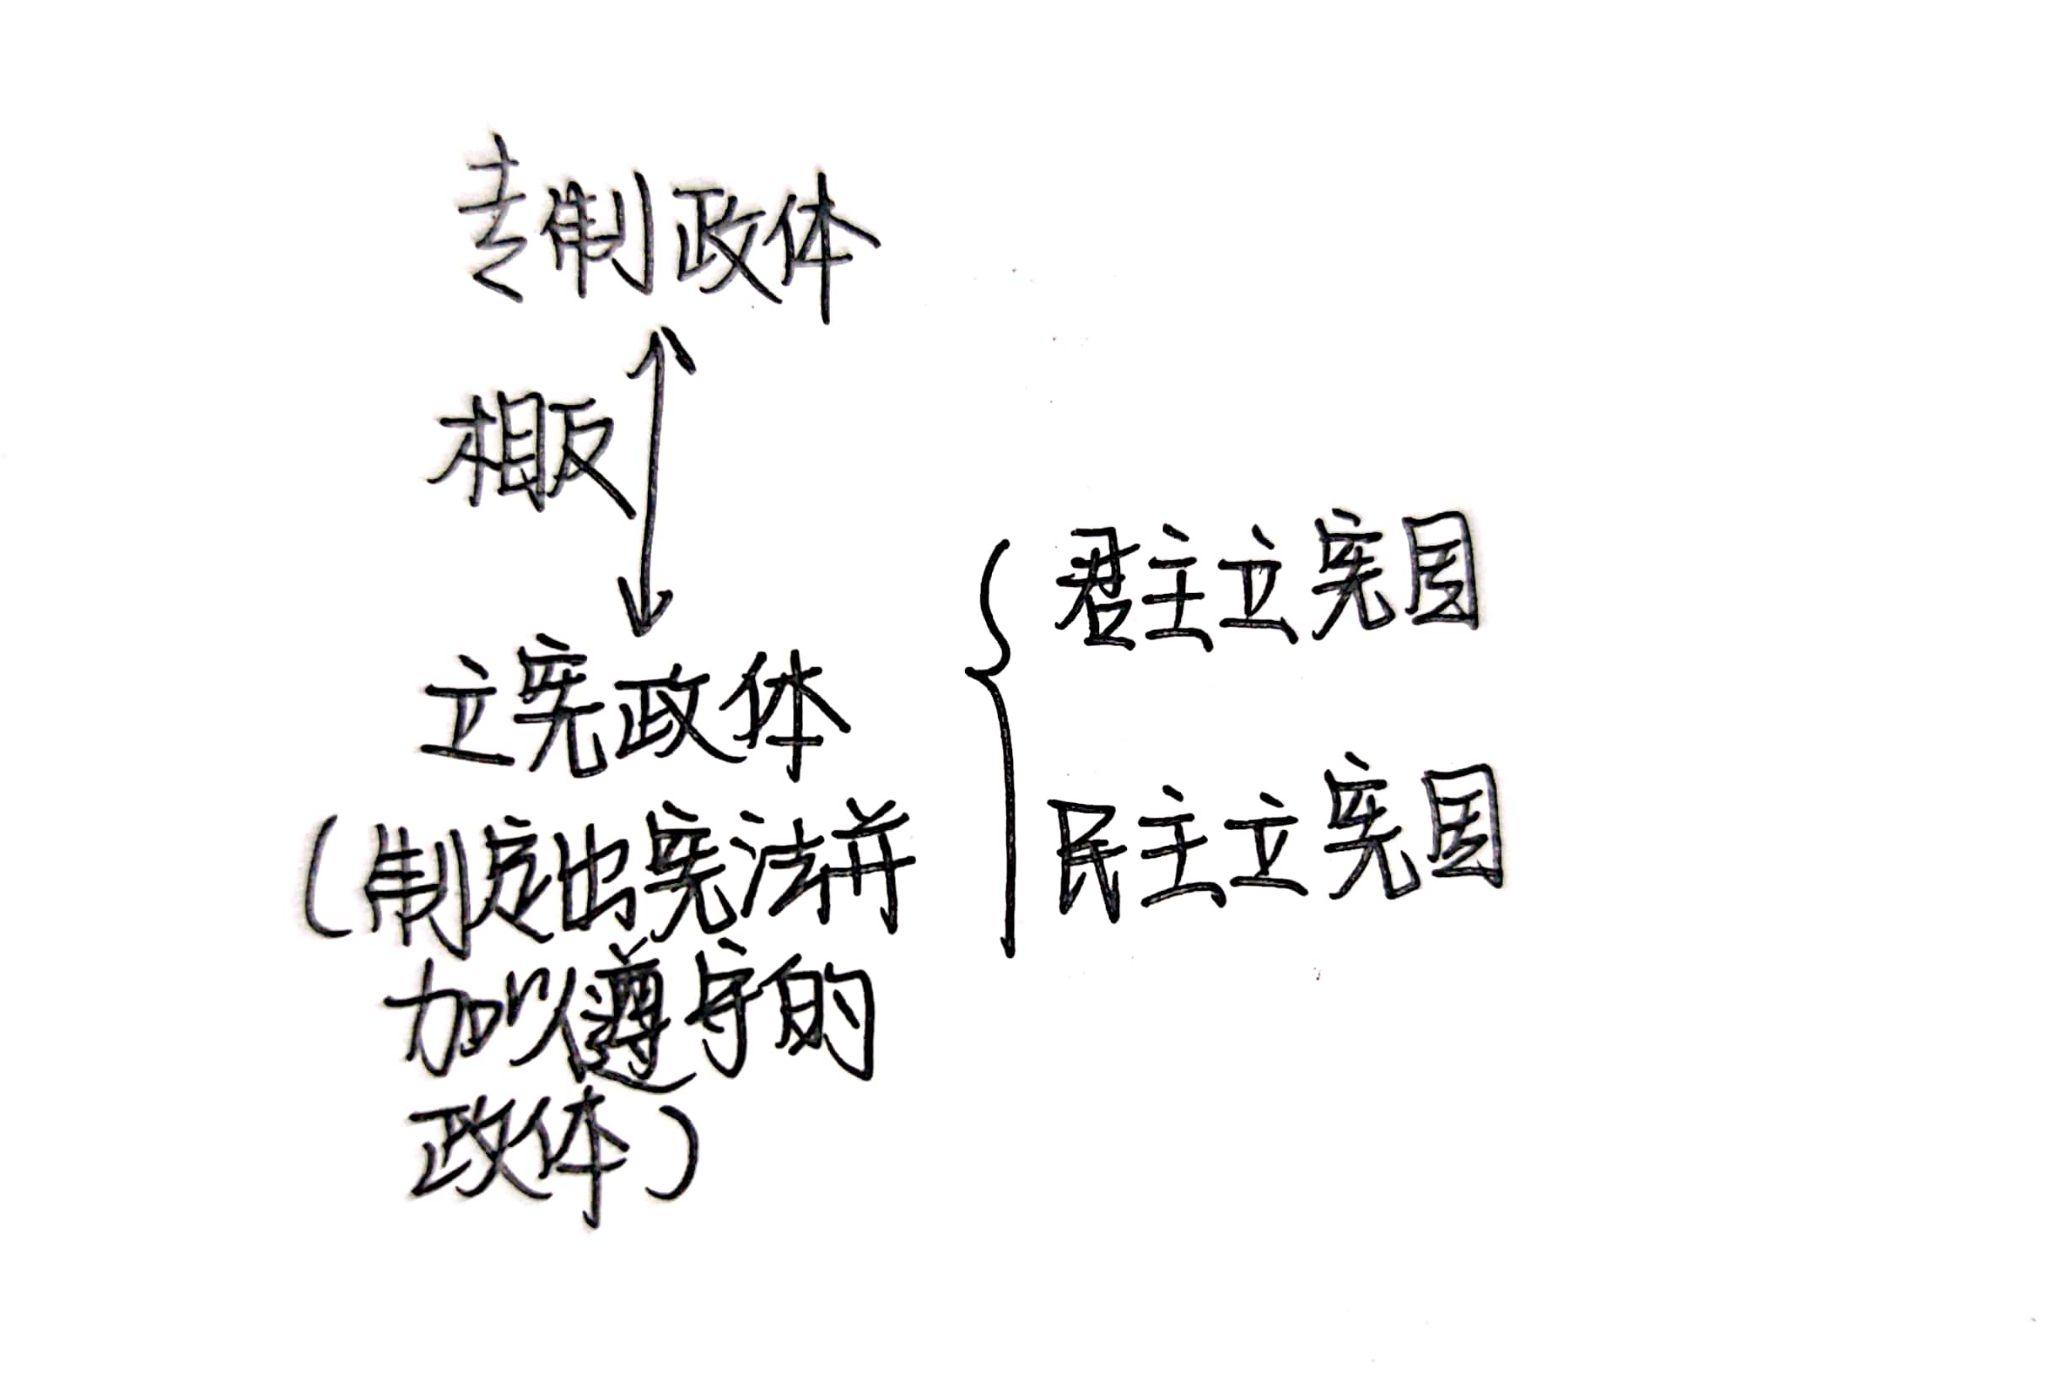 专制政体
相反
立宪政体
(制定出宪法并
加以遵守的
政体)
君主立宪国
民主立宪国